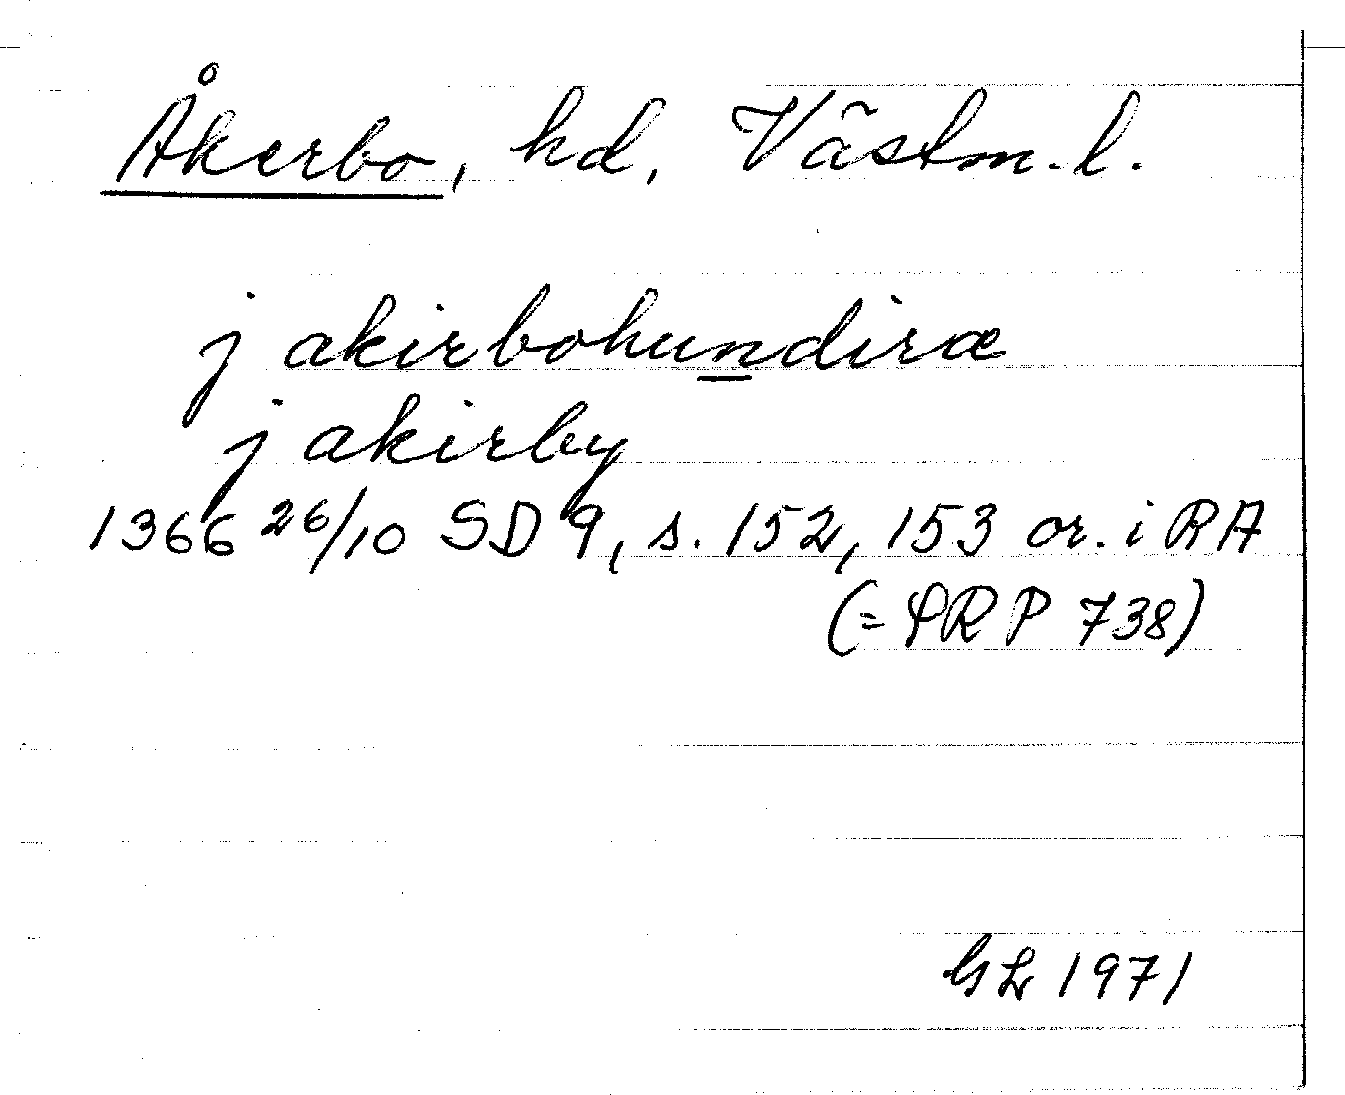 Åkerbo, hd, Västm. l.
j akirbohundiræ
j akirby
1366 26/10 SD 9, s. 152, 153 or. i RA
(= PRP 738)
GL 1971